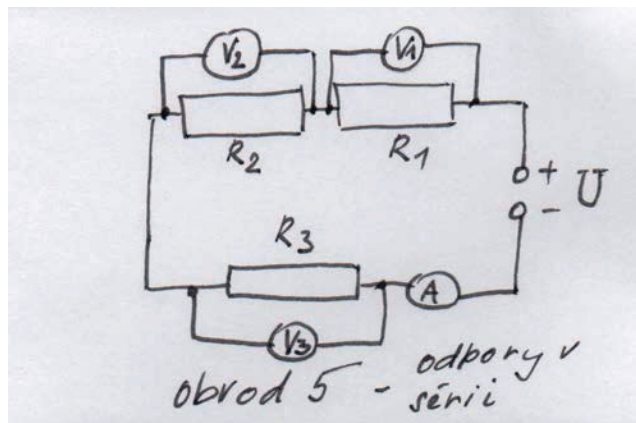 V2 V1
R2 R1
+ U
-
R3
A
V3
obvod 5 - odpory v
sérii